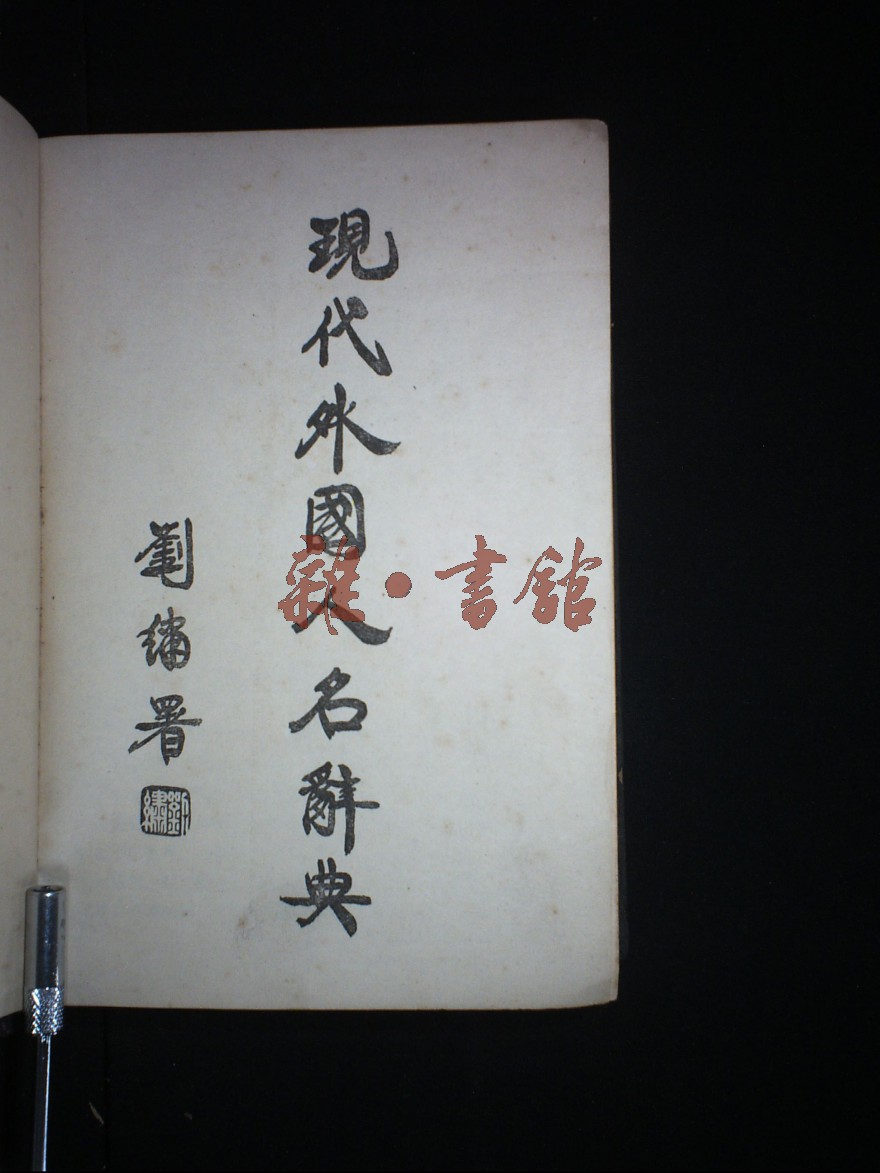 現代外國人名辭典
劉繡署
劉繡
雜·書館